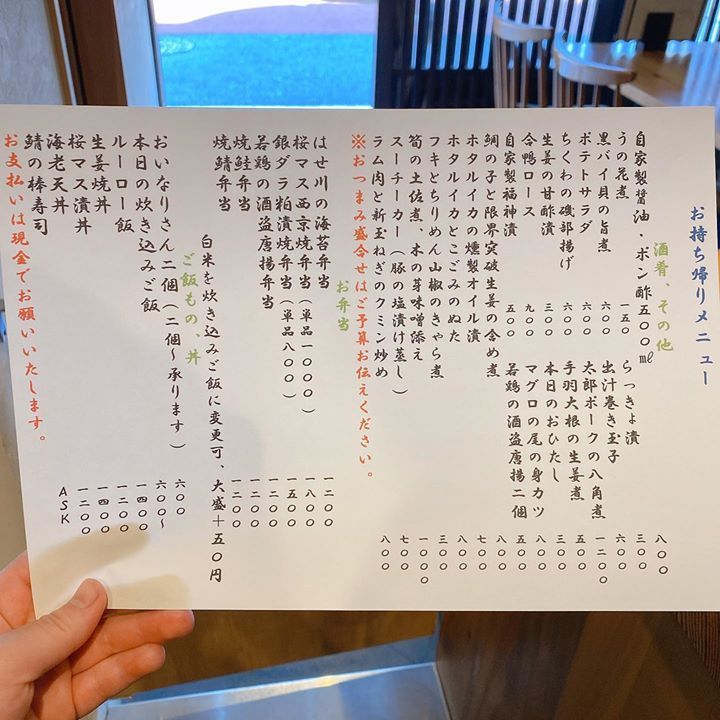 お持ち帰りメニュー
酒肴、その他
自家製醤油・ポン酢五〇〇㎖ 八〇〇
うの花煮 一五〇
らっきょ漬 三〇〇
黒バイ貝の旨煮 六〇〇
出汁巻き玉子 六〇〇
ポテトサラダ 六〇〇
太郎ポークの八角煮 一二〇〇
ちくわの磯部揚げ 六〇〇
手羽大根の生姜煮 五〇〇
生姜の甘酢漬 三〇〇
本日のおひたし 三〇〇
合鴨ロース 九〇〇
マグロの尾の身カツ 八〇〇
自家製福神漬 五〇〇
若鶏の酒盗唐揚二個 五〇〇
鯛の子と限界突破生姜の含め煮 八〇〇
ホタルイカの燻製オイル漬 七〇〇
ホタルイカとこごみのぬた 八〇〇
フキとちりめん山椒のきゃら煮 三〇〇
筍の土佐煮、木の芽味噌添え 一〇〇〇
スーチーカー（豚の塩漬け蒸し） 七〇〇
ラム肉と新玉ねぎのクミン炒め 八〇〇
※おつまみ盛合せはご予算お伝えください。
お弁当
はせ川の海苔弁当 一二〇〇
桜マス西京焼弁当（単品一〇〇〇） 一八〇〇
銀ダラ粕漬焼弁当（単品八〇〇） 一五〇〇
若鶏の酒盗唐揚弁当 一二〇〇
焼鮭弁当 一二〇〇
焼鯖弁当 一二〇〇
白米を炊き込みご飯に変更可、大盛＋五〇円
ご飯もの、丼
おいなりさん二個（二個〜承ります） 六〇〇
本日の炊き込みご飯 六〇〇〜
ルーロー飯 一四〇〇
生姜焼丼 一二〇〇
桜マス漬丼 一四〇〇
海老天丼 一二〇〇
鯖の棒寿司 ASK
お支払いは現金でお願いいたします。